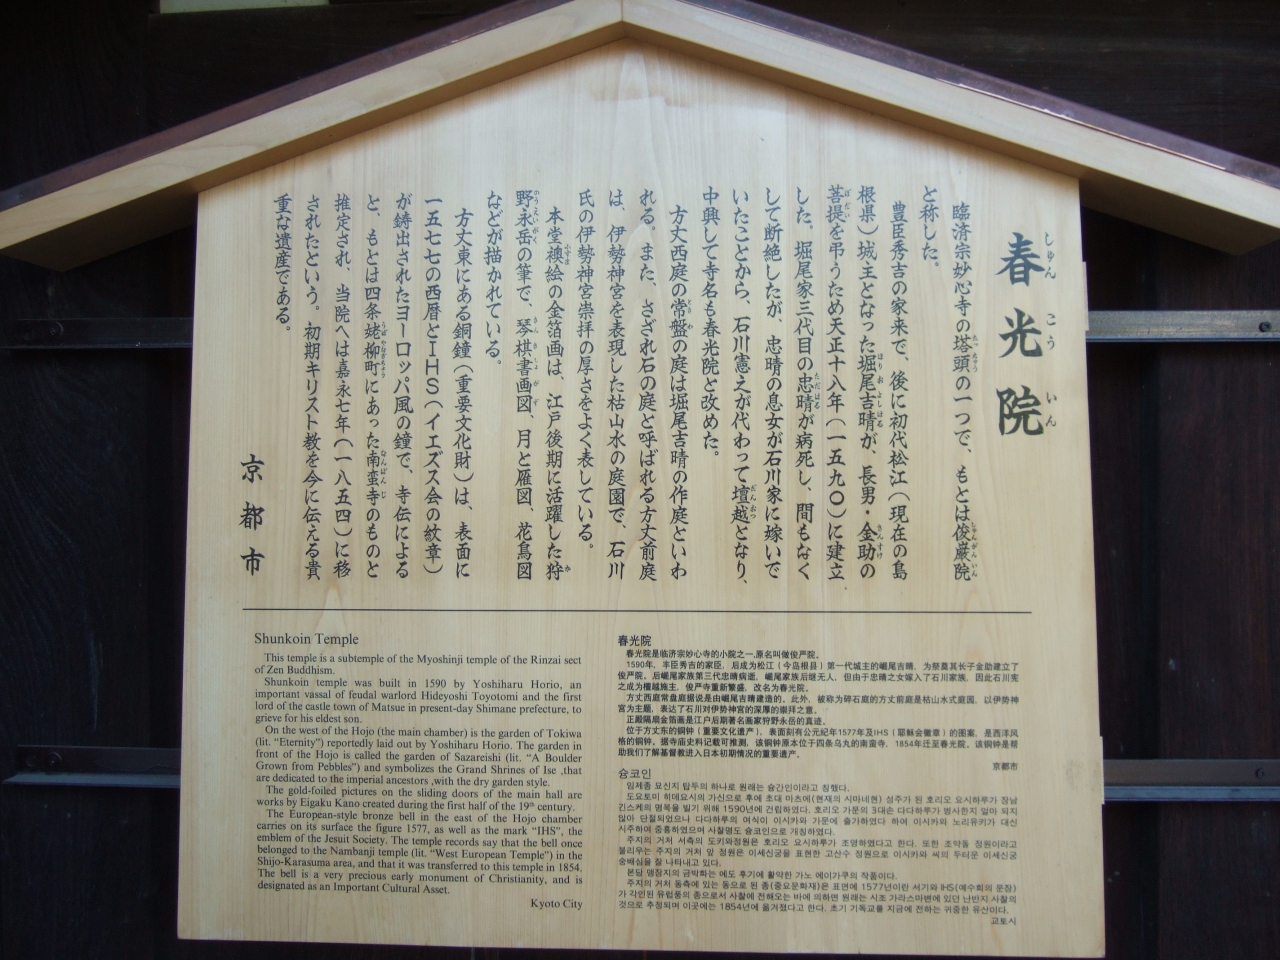 春光院
臨済宗妙心寺の塔頭の一つで、もとは俊巌院
と称した。
豊臣秀吉の家来で、後に初代松江（現在の島
根県）城主となった堀尾吉晴が、長男・金助の
菩提を弔うため天正十八年（一五九〇）に建立
した。堀尾家三代目の忠晴が病死し、間もなく
して断絶したが、忠晴の息女が石川家に嫁いで
いたことから、石川憲之が代わって壇越となり、
中興して寺名も春光院と改めた。
方丈西庭の常盤の庭は堀尾吉晴の作庭といわ
れる。また、さざれ石の庭と呼ばれる方丈前庭
は、伊勢神宮を表現した枯山水の庭園で、石川
氏の伊勢神宮崇拝の厚さをよく表している。
本堂襖絵の金箔画は、江戸後期に活躍した狩
野永岳の筆で、琴棋書画図、月と雁図、花鳥図
などが描かれている。
方丈東にある銅鐘（重要文化財）は、表面に
一五七七の西暦とIHS（イエズス会の紋章）
が鋳出されたヨーロッパ風の鐘で、寺伝による
と、もとは四条姥柳町にあった南蛮寺のものと
推定され、当院へは嘉永七年（一八五四）に移
されたという。初期キリスト教を今に伝える貴
重な遺産である。
京都市
Shunkoin Temple
This temple is a subtemple of the Myoshinji temple of the Rinzai sect
of Zen Buddhism.
Shunkoin temple was built in 1590 by Yoshiharu Horio, an
important vassal of feudal warlord Hideyoshi Toyotomi and the first
lord of the castle town of Matsue in present-day Shimane prefecture, to
grieve for his eldest son.
On the west of the Hojo (the main chamber) is the garden of Tokiwa
(lit. "Eternity") reportedly laid out by Yoshiharu Horio. The garden in
front of the Hojo is called the garden of Sazareishi (lit. "A Boulder
Grown from Pebbles") and symbolizes the Grand Shrines of Ise ,that
are dedicated to the imperial ancestors ,with the dry garden style.
The gold-foiled pictures on the sliding doors of the main hall are
works by Eigaku Kano created during the first half of the 19th century.
The European-style bronze bell in the east of the Hojo chamber
carries on its surface the figure 1577, as well as the mark "IHS", the
emblem of the Jesuit Society. The temple records say that the bell once
belonged to the Nambanji temple (lit. "West European Temple") in the
Shijo-Karasuma area, and that it was transferred to this temple in 1854.
The bell is a very precious early monument of Christianity, and is
designated as an Important Cultural Asset.
Kyoto City
春光院
春光院是临济宗妙心寺的小院之一,原名叫做俊严院。
1590年，丰臣秀吉的家臣，后成为松江（今岛根县）第一代城主的崛尾吉晴，为祭奠其长子金助建立了
俊严院。后崛尾家族第三代忠晴病逝，崛尾家族后继无人，但由于忠晴之女嫁入了石川家族，因此石川宪
之成为檀越施主，俊严寺重新繁盛，改名为春光院。
方丈西庭常盘庭据说是由崛尾吉晴建造的。此外，被称为碎石庭的方丈前庭是枯山水式庭园，以伊势神
宫为主题，表达了石川对伊势神宫的深厚的崇拜之意。
正殿隔扇金箔画是江户后期著名画家狩野永岳的真迹。
位于方丈东的铜钟（重要文化遗产），表面刻有公元纪年1577年及IHS（耶稣会徽章）的图案，是西洋风
格的铜钟。据寺庙史料记载可推测，该铜钟原本位于四条乌丸的南蛮寺，1854年迁至春光院。该铜钟是帮
助我们了解基督教进入日本初期情况的重要遗产。
京都市
슌코인
임제종 묘신지 탑두의 하나로 원래는 슌간인이라고 칭했다.
도요토미 히데요시의 가신으로 후에 초대 마츠에(현재의 시마네현) 성주가 된 호리오 요시하루가 장남
긴스케의 명복을 빌기 위해 1590년에 건립하였다. 호리오 가문의 3대손 다다하루가 병사한지 얼마 되지
않아 단절되었으나 다다하루의 여식이 이시카와 가문에 출가하였다 하여 이시카와 노리유키가 대신
시주하여 중흥하였으며 사찰명도 슌코인으로 개칭하였다.
주지의 거처 서측의 도키와정원은 호리오 요시하루가 조영하였다고 한다. 또한 조약돌 정원이라고
불리우는 주지의 거처 앞 정원은 이세신궁을 표현한 고산수 정원으로 이시카와 씨의 두터운 이세신궁
숭배심을 잘 나타내고 있다.
본당 맹장지의 금박화는 에도 후기에 활약한 가노 에이가쿠의 작품이다.
주지의 거처 동측에 있는 동으로 된 종(중요문화재)은 표면에 1577년이란 서기와 IHS(예수회의 문장)
가 각인된 유럽풍의 종으로서 사찰에 전해오는 바에 의하면 원래는 시조 가라스마변에 있던 난반지 사찰의
것으로 추정되며 이곳에는 1854년에 옮겨졌다고 한다. 초기 기독교를 지금에 전하는 귀중한 유산이다.
교토시